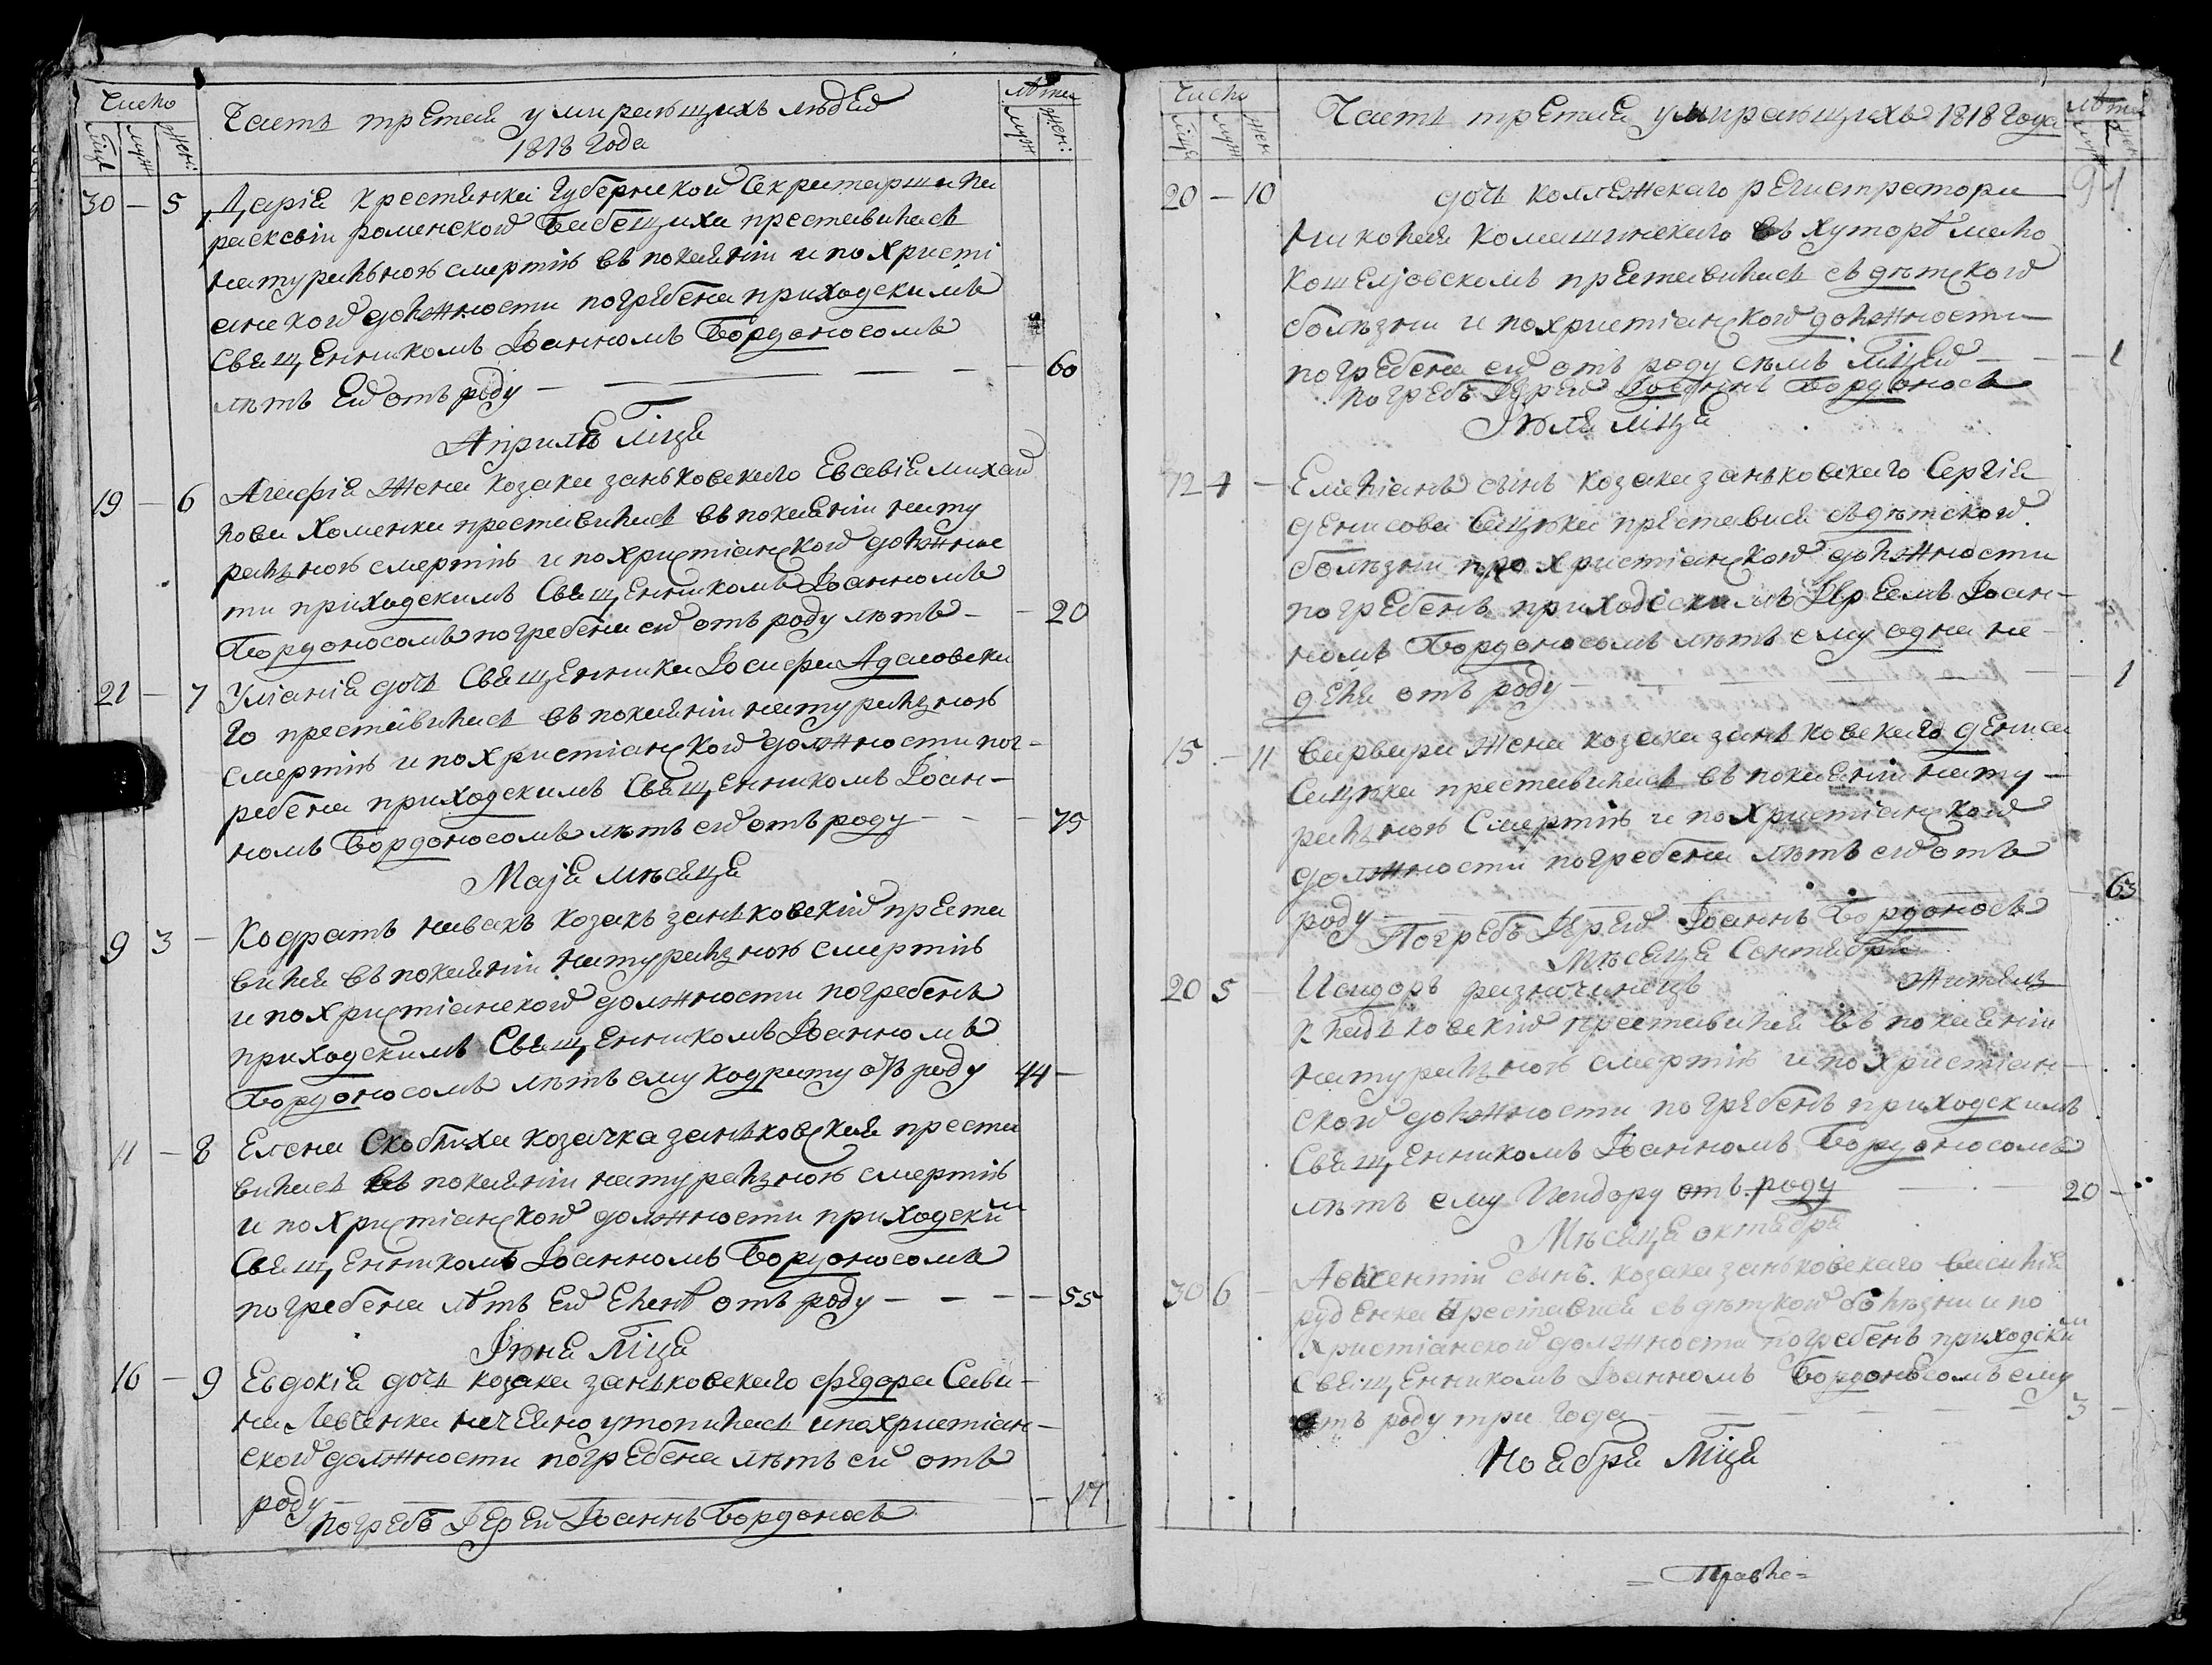 Число
Часть третая умирающихъ людей
1818 года
Лѣта
Мца муж жен:
муж жен:
30 – 5 Дарія крестянка Губернской Секритарши Па
раскевіи роменской Бабещиха преставилась
натуральною смертію въ покаяніи и по христі
анской должности погребена приходскимъ
Священникомъ Іоанномъ Бордоносомъ
лѣтъ Ей отъ роду – – 60
Априля мца
19 – 6 Агафія жена козака заньковского Евсевія михай
лова Хоменка преставилась въ покаяніи нату
ральною смертію и по христіанской должнос
ти приходскимъ Священникомъ Іоанномъ
Бордоносомъ погребена ей отъ роду лѣтъ – – 20
21 – 7 Уліанія дочь Священника Іосифа Адасовска
го преставилась въ покаяніи натуральною
смертію и по христіанской должности пог-
ребена приходскимъ Священникомъ Іоан-
номъ Бордоносомъ лѣтъ ей отъ роду – – 75
Маія мѣсяца
9 3 – Кодратъ козакъ занковскій преста
вился въ покаяніи натуральною смертію
и по христіанской должности погребенъ
приходскимъ Священникомъ Іоанномъ
Бордоносомъ лѣтъ ему кодрату отъ роду 44 –
11 – 8 Елена Скобтиха козачка занковская преста
вилась въ покаяніи натуральною смертію
и по христіанской должности приходским
Священникомъ Іоанномъ Бордоносомъ
погребена лѣтъ Ей Еленѣ отъ роду – – – 55
Іюня мца
16 – 9 Евдокія дочь козака занковского федора Сави-
на Левченка нечаяно утопилась и по христіан-
ской должности погребена лѣтъ ей отъ
роду – – 17
погребъ Іерей Іоаннъ Бордоносъ
Число
Часть третая умирающихъ 1818 года
Лѣта
Мца муж жен
муж жен
91
20 – 10 дочь коллежскаго регистратора
николая комашинскаго въ хуторѣ мало
кошелювскомъ преставилась съ дѣтской
болѣзни и по христіанской должности
погребена ей отъ роду семъ мцей – – 1
погребъ Іерей Іоаннъ Бордоносъ
Іюля мца
12 4 – Емеліанъ сынъ козака занковского Сергія
денисова Сацка преставися съ дѣтской
болѣзни по христіанской должности
погребенъ приходскимъ Іереемъ Іоан-
номъ Бордоносомъ лѣтъ ему одна не-
деля отъ роду – – 1
15 – 11 Варвара жена козака занковского дениса
Сацка преставилась въ покаяніи нату-
ральною Смертію и по христіанской
должности погребена лѣтъ ей отъ
роду – – 63
Погребъ Іерей Іоаннъ Бордоносъ
Мѣсяца Сентября
20 5 – Исидоръ разночинецъ житель
кладковскій преставился въ покаяніи
натуральною смертію и по христіан-
ской должности погребенъ приходскимъ
Священникомъ Іоанномъ Бордоносомъ
лѣтъ ему Исидору отъ роду – – 20 –
Мѣсяца октября
30 6 – Авксентій сынъ козака занковского василія
руденка преставися съ дѣткой болѣзни и по
христіанской должности погребенъ приходским
Священникомъ Іоанномъ Бордоносомъ ему
отъ роду три года – – 3 –
Ноября мца
= Правле=